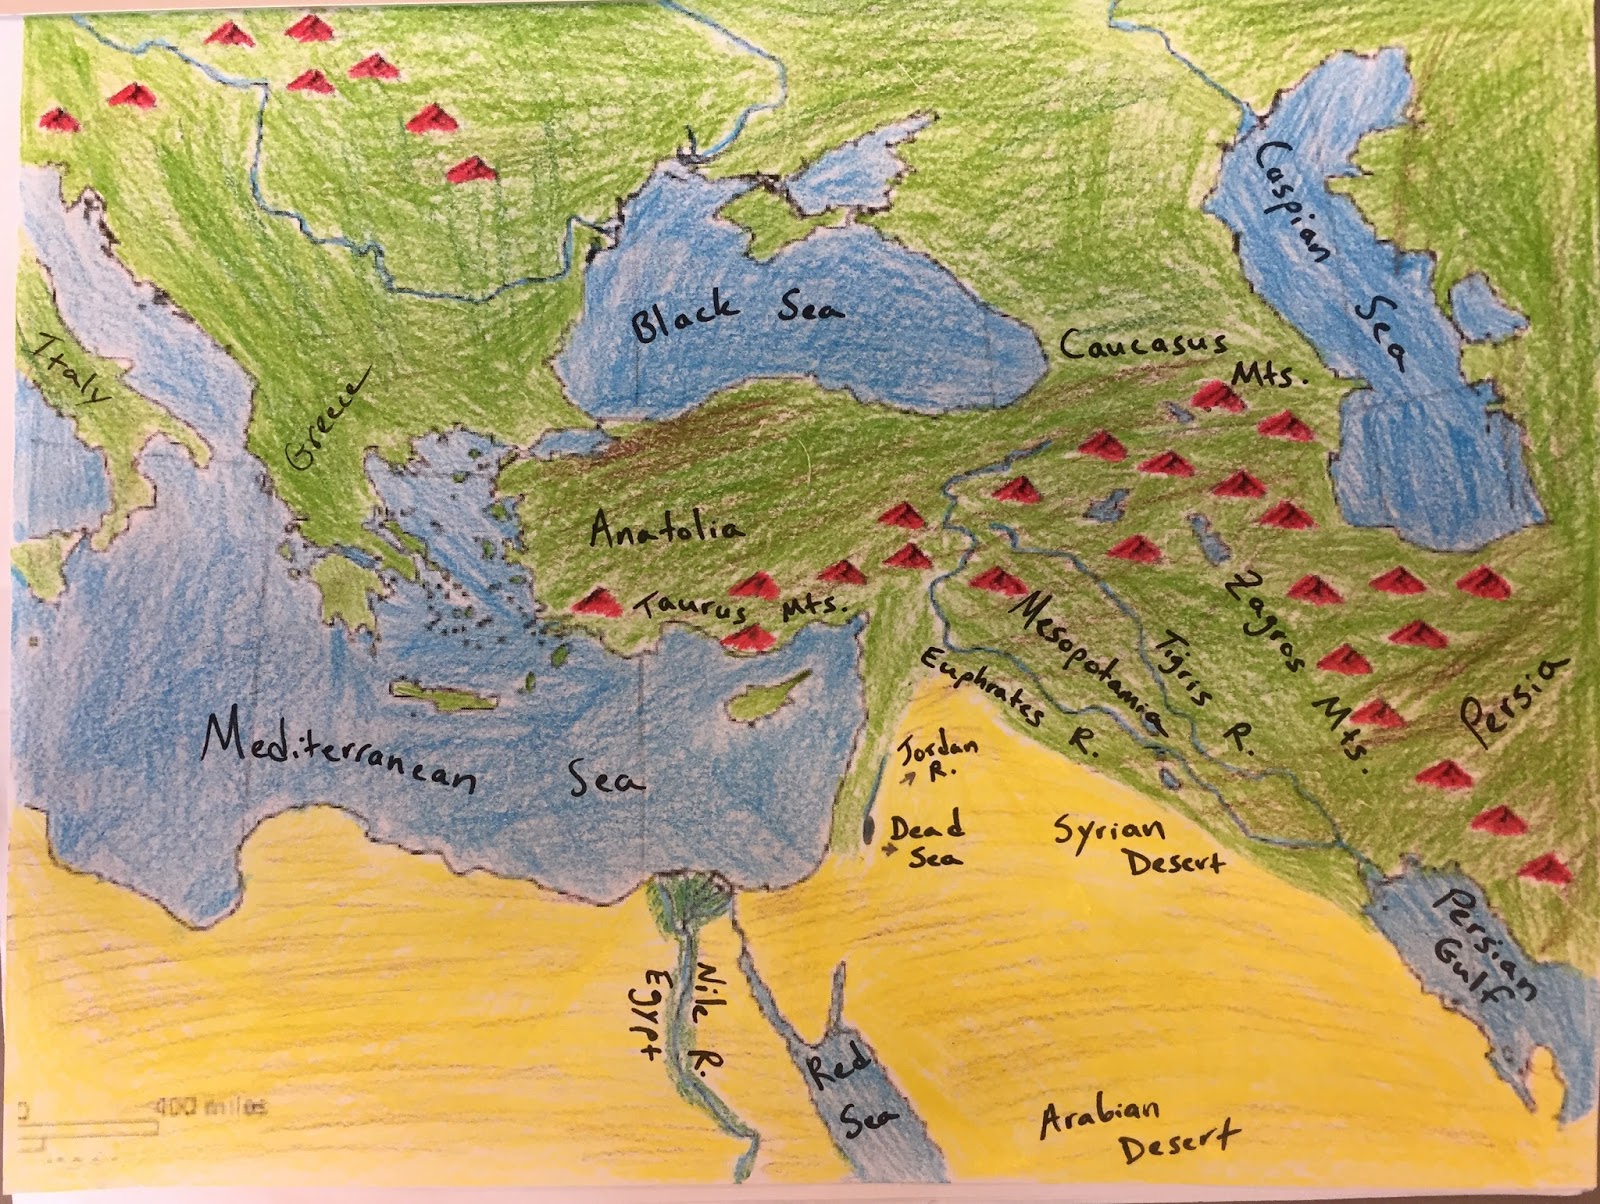 Caspian
Sea
Black Sea
Italy
Greece
Caucasus
Mts.
Anatolia
Taurus Mts.
Mesopotamia
Tigris R.
Euphrates R.
Zagros Mts.
Persia
Mediterranean Sea
Jordan
R.
Dead
Sea
Syrian
Desert
Persian
Gulf
Nile R.
Egypt
Red
Sea
Arabian
Desert
0 400 miles